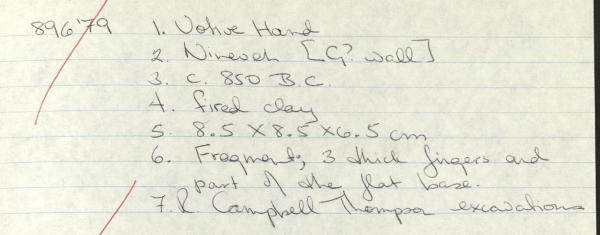 896'79 1. Votive Hand
2. Nineveh [G? wall]
3. c. 850 B.C.
4. fired clay
5. 8.5 x 8.5 x 6.5 cm
6. Fragment; 3 thick fingers and
part of the flat base.
7. R. Campbell Thompson excavations